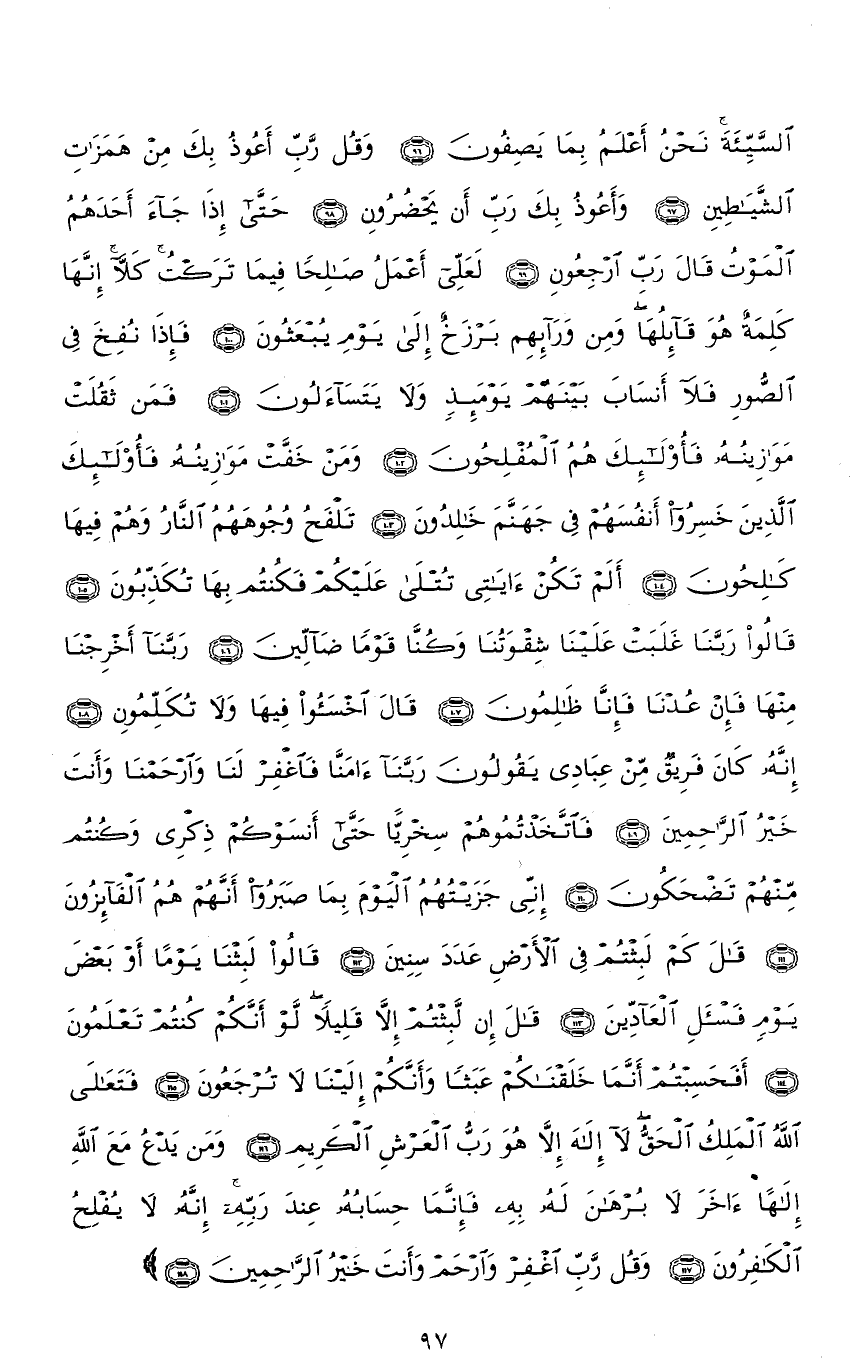 ٱلسَّيِّئَةَۚ نَحْنُ أَعْلَمُ بِمَا يَصِفُونَ ٩٦ وَقُل رَّبِّ أَعُوذُ بِكَ مِنْ هَمَزَٰتِ
ٱلشَّيَٰطِينِ ٩٧ وَأَعُوذُ بِكَ رَبِّ أَن يَحْضُرُونِ ٩٨ حَتَّىٰٓ إِذَا جَآءَ أَحَدَهُمُ
ٱلْمَوْتُ قَالَ رَبِّ ٱرْجِعُونِ ٩٩ لَعَلِّىٓ أَعْمَلُ صَٰلِحًا فِيمَا تَرَكْتُۚ كَلَّآۚ إِنَّهَا
كَلِمَةٌ هُوَ قَآئِلُهَاۖ وَمِن وَرَآئِهِم بَرْزَخٌ إِلَىٰ يَوْمِ يُبْعَثُونَ ١٠٠ فَإِذَا نُفِخَ فِى
ٱلصُّورِ فَلَآ أَنسَابَ بَيْنَهُمْ يَوْمَئِذٍ وَلَا يَتَسَآءَلُونَ ١٠١ فَمَن ثَقُلَتْ
مَوَٰزِينُهُۥ فَأُو۟لَٰٓئِكَ هُمُ ٱلْمُفْلِحُونَ ١٠٢ وَمَنْ خَفَّتْ مَوَٰزِينُهُۥ فَأُو۟لَٰٓئِكَ
ٱلَّذِينَ خَسِرُوٓا۟ أَنفُسَهُمْ فِى جَهَنَّمَ خَٰلِدُونَ ١٠٣ تَلْفَحُ وُجُوهَهُمُ ٱلنَّارُ وَهُمْ فِيهَا
كَٰلِحُونَ ١٠٤ أَلَمْ تَكُنْ ءَايَٰتِى تُتْلَىٰ عَلَيْكُمْ فَكُنتُم بِهَا تُكَذِّبُونَ ١٠٥
قَالُوا۟ رَبَّنَا غَلَبَتْ عَلَيْنَا شِقْوَتُنَا وَكُنَّا قَوْمًا ضَآلِّينَ ١٠٦ رَبَّنَآ أَخْرِجْنَا
مِنْهَا فَإِنْ عُدْنَا فَإِنَّا ظَٰلِمُونَ ١٠٧ قَالَ ٱخْسَـُٔوا۟ فِيهَا وَلَا تُكَلِّمُونِ ١٠٨
إِنَّهُۥ كَانَ فَرِيقٌ مِّنْ عِبَادِى يَقُولُونَ رَبَّنَآ ءَامَنَّا فَٱغْفِرْ لَنَا وَٱرْحَمْنَا وَأَنتَ
خَيْرُ ٱلرَّٰحِمِينَ ١٠٩ فَٱتَّخَذْتُمُوهُمْ سِخْرِيًّا حَتَّىٰٓ أَنسَوْكُمْ ذِكْرِى وَكُنتُم
مِّنْهُمْ تَضْحَكُونَ ١١٠ إِنِّى جَزَيْتُهُمُ ٱلْيَوْمَ بِمَا صَبَرُوٓا۟ أَنَّهُمْ هُمُ ٱلْفَآئِزُونَ
١١١ قَٰلَ كَمْ لَبِثْتُمْ فِى ٱلْأَرْضِ عَدَدَ سِنِينَ ١١٢ قَالُوا۟ لَبِثْنَا يَوْمًا أَوْ بَعْضَ
يَوْمٍ فَسْـَٔلِ ٱلْعَآدِّينَ ١١٣ قَٰلَ إِن لَّبِثْتُمْ إِلَّا قَلِيلًاۖ لَّوْ أَنَّكُمْ كُنتُمْ تَعْلَمُونَ
١١٤ أَفَحَسِبْتُمْ أَنَّمَا خَلَقْنَٰكُمْ عَبَثًا وَأَنَّكُمْ إِلَيْنَا لَا تُرْجَعُونَ ١١٥ فَتَعَٰلَى
ٱللَّهُ ٱلْمَلِكُ ٱلْحَقُّۖ لَآ إِلَٰهَ إِلَّا هُوَ رَبُّ ٱلْعَرْشِ ٱلْكَرِيمِ ١١٦ وَمَن يَدْعُ مَعَ ٱللَّهِ
إِلَٰهًا ءَاخَرَ لَا بُرْهَٰنَ لَهُۥ بِهِۦ فَإِنَّمَا حِسَابُهُۥ عِندَ رَبِّهِۦٓۚ إِنَّهُۥ لَا يُفْلِحُ
ٱلْكَٰفِرُونَ ١١٧ وَقُل رَّبِّ ٱغْفِرْ وَٱرْحَمْ وَأَنتَ خَيْرُ ٱلرَّٰحِمِينَ ١١٨ ﴾
٩٧